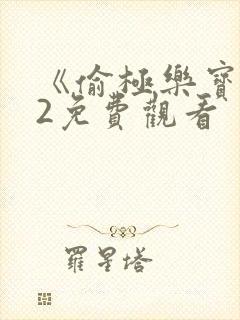 《偷極樂寶
2免費觀看
羅星塔